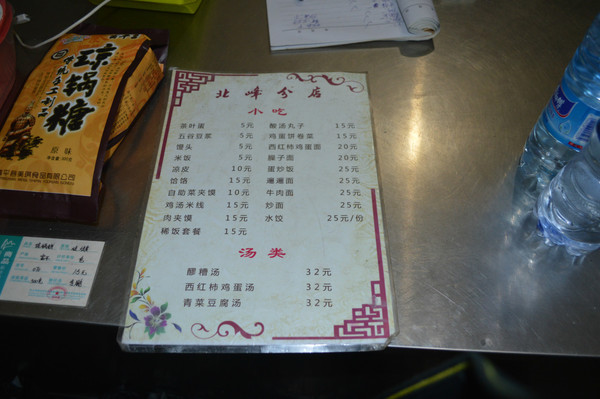 琼锅糖
原味
北峰分店
小吃
茶叶蛋 5元 酸汤丸子 15元
五谷豆浆 5元 鸡蛋饼卷菜 15元
馒头 5元 西红柿鸡蛋面 20元
米饭 5元 臊子面 25元
凉皮 10元 蛋炒饭 25元
饸饹 15元 𰻝𰻝面 25元
自助菜夹馍 10元 牛肉面 25元
鸡汤米线 15元 炒面 25元
肉夹馍 15元 水饺 25元/份
稀饭套餐 15元
汤类
醪糟汤 32元
西红柿鸡蛋汤 32元
青菜豆腐汤 32元